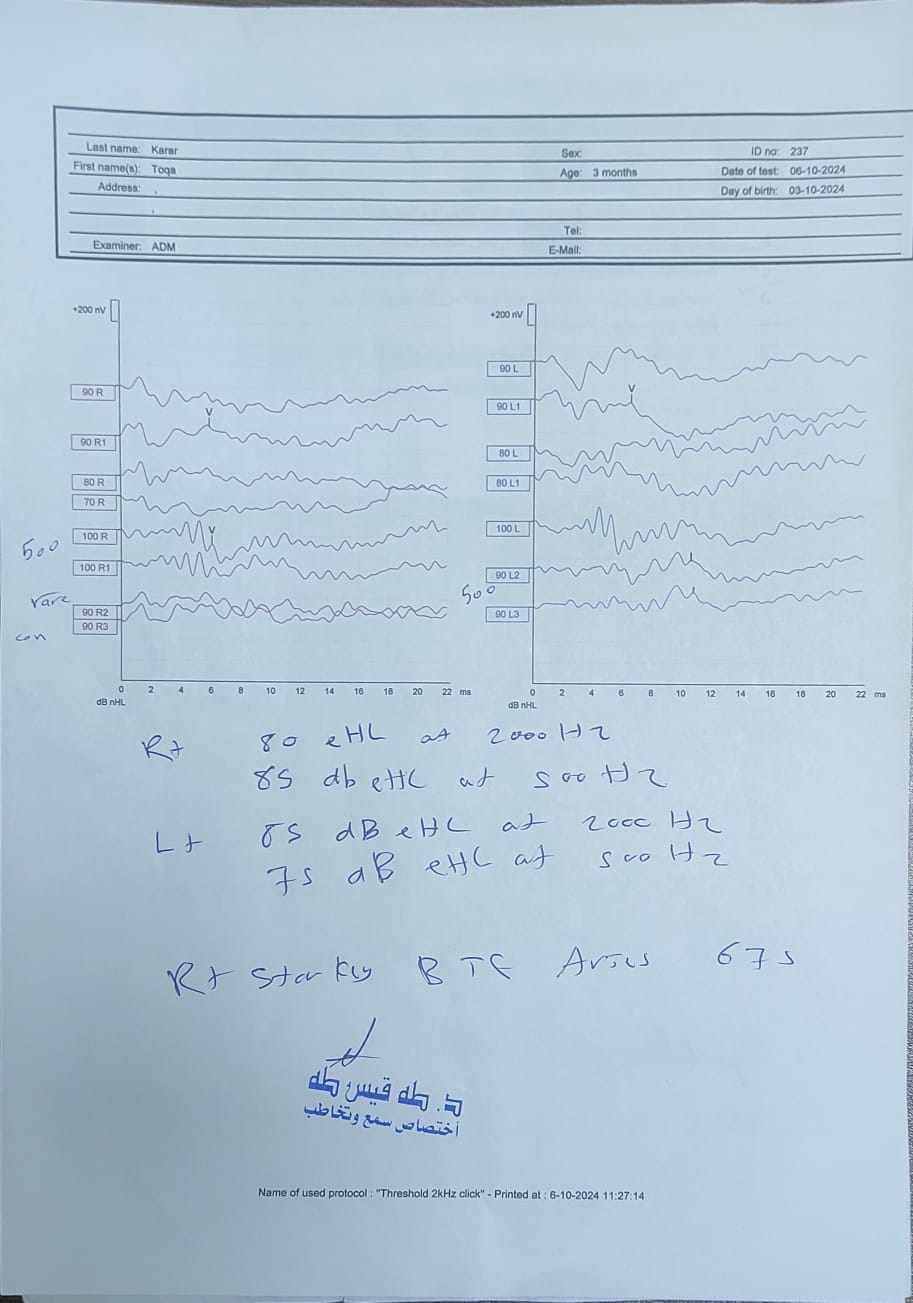 Last name: Karar Sex: ID no: 237
First name(s): Toqa Age: 3 months Date of test: 06-10-2024
Address: . Day of birth: 03-10-2024
.
Tel:
Examiner: ADM E-Mail:
+200 nV
90 R
V
90 R1
80 R
70 R
500 100 R V
100 R1
90 R2
con 90 R3
0 2 4 6 8 10 12 14 16 18 20 22 ms
dB nHL
+200 nV
90 L
V
90 L1
80 L
80 L1
100 L
90 L2
500
90 L3
0 2 4 6 8 10 12 14 16 18 20 22 ms
dB nHL
Rt 80 eHL at 2000 Hz
85 db eHL at 500 Hz
Lt 85 dB eHL at 2000 Hz
75 dB eHL at 500 Hz
Rt Starkey BTE 675
د. طه قيس طه
أختصاص سمع وتخاطب
Name of used protocol : "Threshold 2kHz click" - Printed at : 6-10-2024 11:27:14